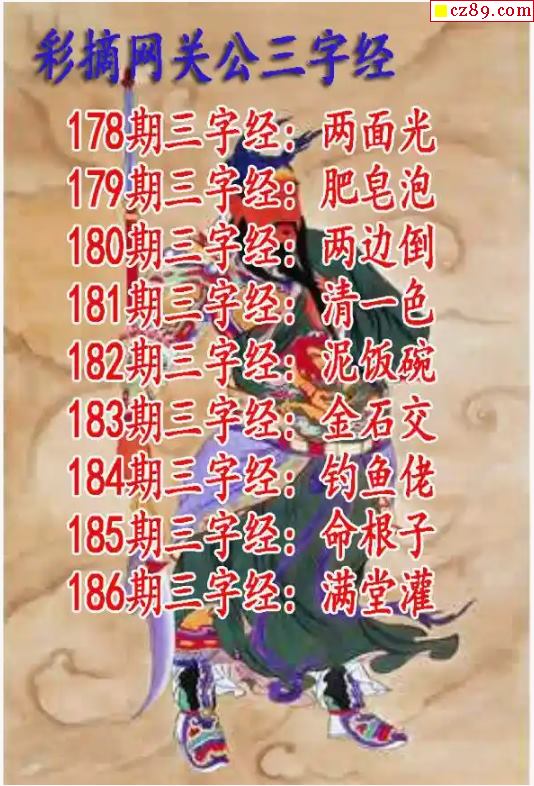 cz89.com
彩摘网关公三字经
178期三字经：两面光
179期三字经：肥皂泡
180期三字经：两边倒
181期三字经：清一色
182期三字经：泥饭碗
183期三字经：金石交
184期三字经：钓鱼佬
185期三字经：命根子
186期三字经：满堂灌